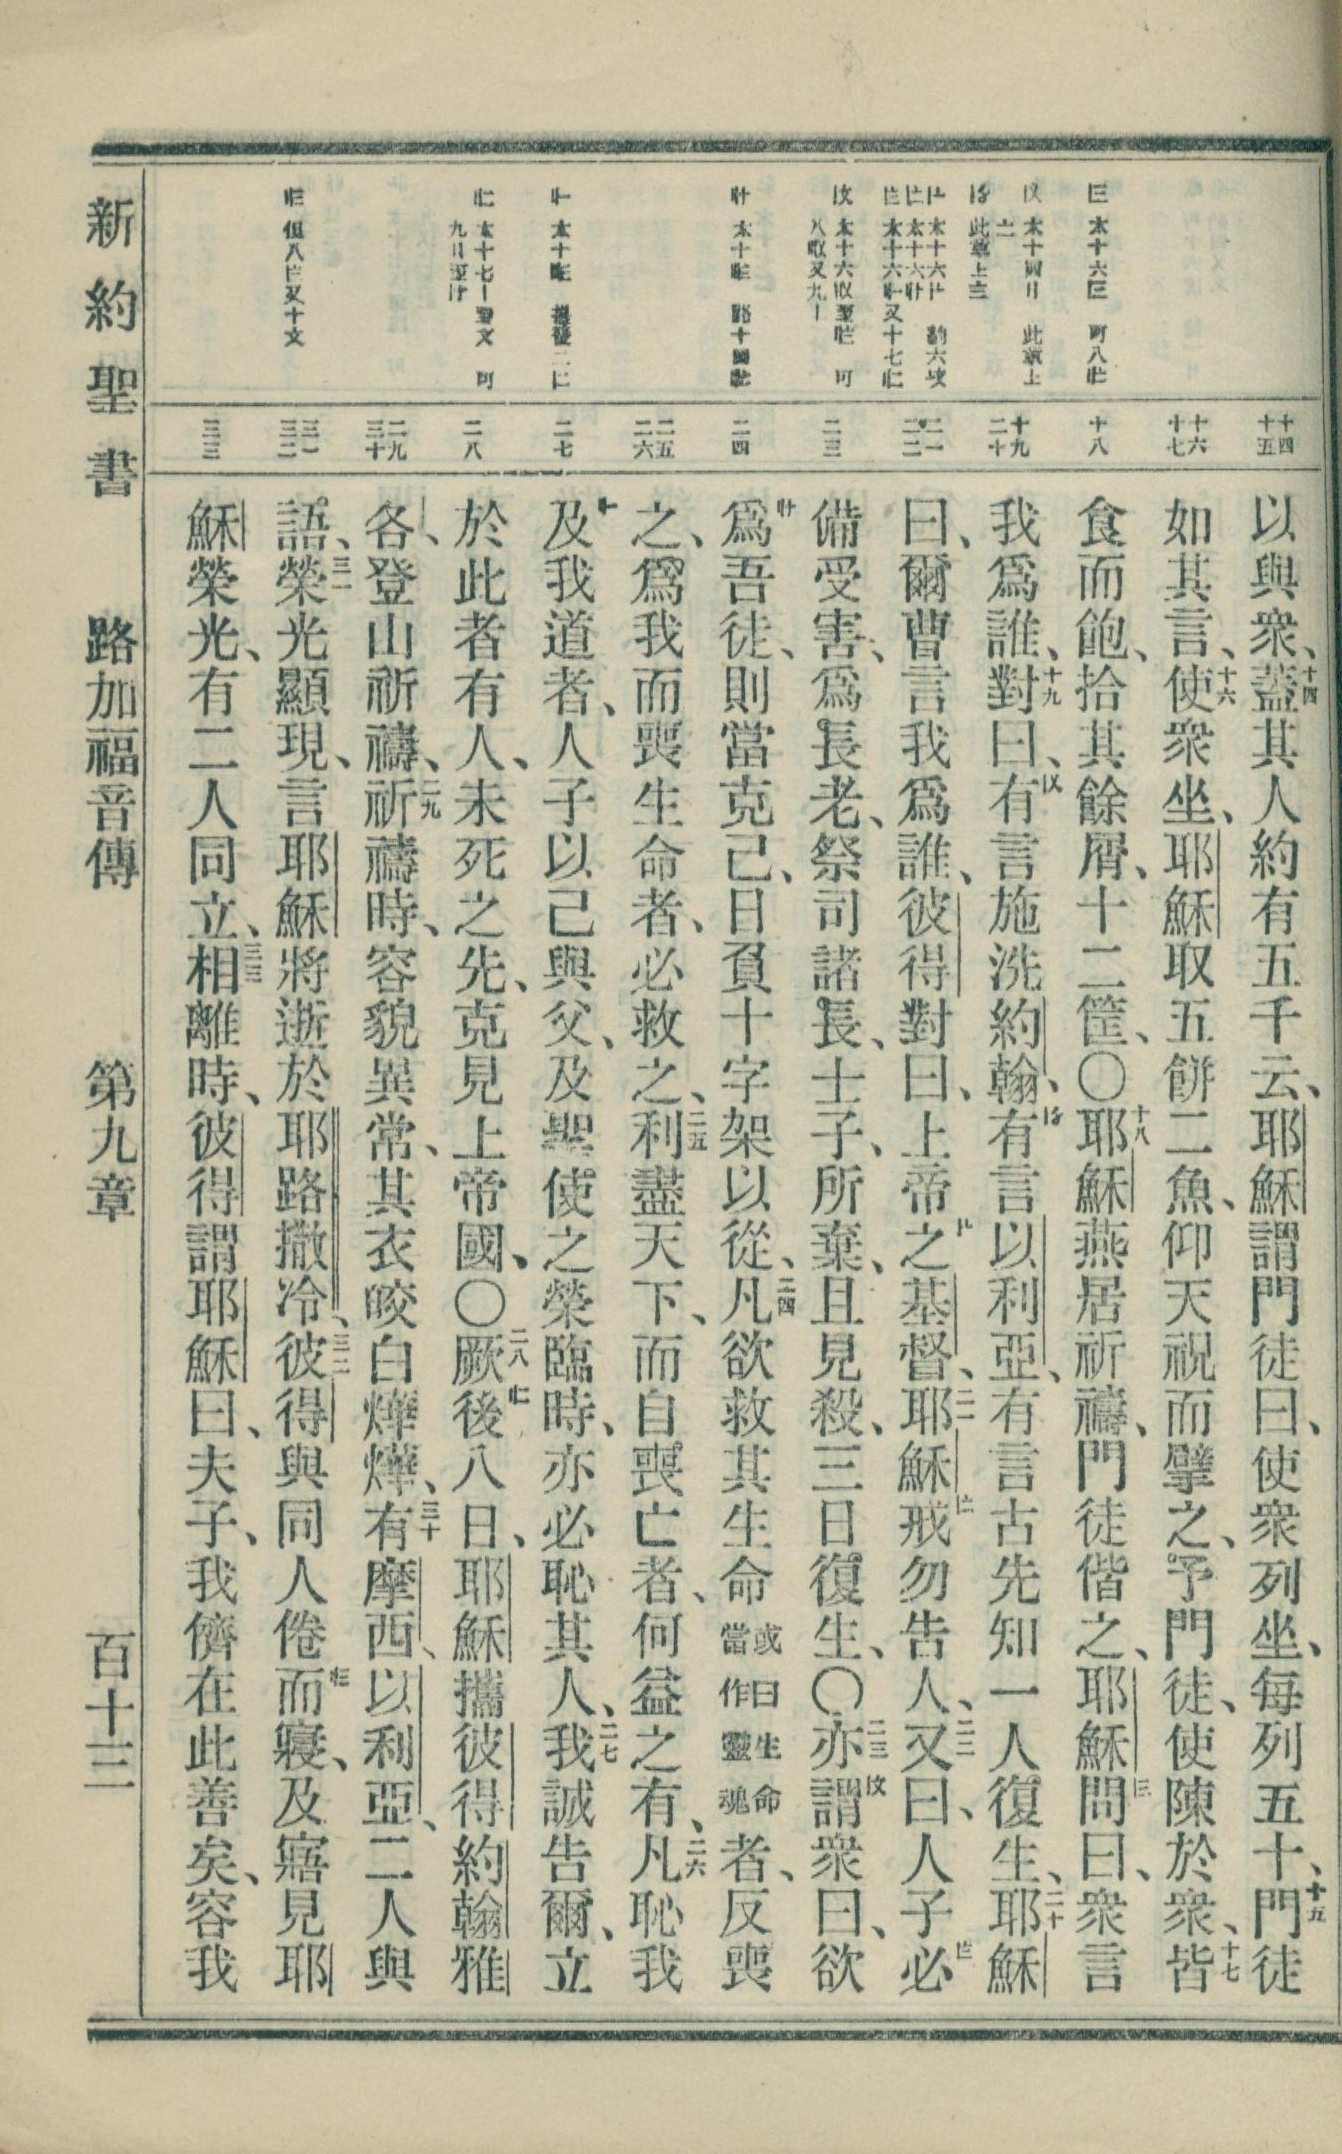 十四
十五
十六
十七
十八
十九
二十
二一
二二
二三
二四
二五
二六
二七
二八
二九
三十
三一
三二
三三
以與衆、十四蓋其人約有五千云、耶穌謂門徒曰、使衆列坐、每列五十、十五門徒
如其言、十六使衆坐、耶穌取五餅二魚、仰天祝而擘之、予門徒、使陳於衆、十七皆
食而飽、拾其餘屑、十二筐、〇十八耶穌燕居祈禱、門徒偕之、耶穌問曰、衆言
我爲誰、十九對曰、有言施洗約翰、有言以利亞、有言古先知一人復生、二十耶穌
曰、爾曹言我爲誰、彼得對曰、上帝之基督、二一耶穌戒勿告人、二二又曰、人子必
備受害、爲長老、祭司諸長、士子、所棄、且見殺、三日復生、〇二三亦謂衆曰、欲
爲吾徒、則當克己、日負十字架以從、二四凡欲救其生命或曰生命當作靈魂者、反喪
之、爲我而喪生命者、必救之、二五利盡天下、而自喪亡者、何益之有、二六凡恥我
及我道者、人子以己與父、及聖使之榮臨時、亦必恥其人、二七我誠告爾、立
於此者有人、未死之先、克見上帝國、〇二八厥後八日、耶穌攜彼得約翰雅
各、登山祈禱、二九祈禱時、容貌異常、其衣皎白燁燁、三十有摩西、以利亞、二人與
語、三一榮光顯現、言耶穌將逝於耶路撒冷、三二彼得與同人倦而寢、及寤見耶
穌榮光、有二人同立、三三相離時、彼得謂耶穌曰、夫子、我儕在此善矣、容我
新約聖書　路加福音傳　第九章　百十三